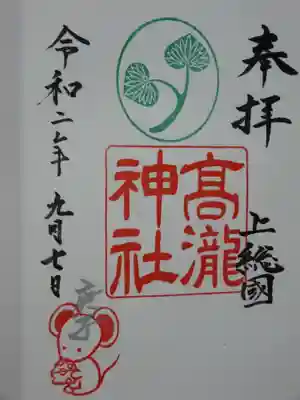 奉拝
上総國
髙瀧
神社
令和二年九月七日
庚子